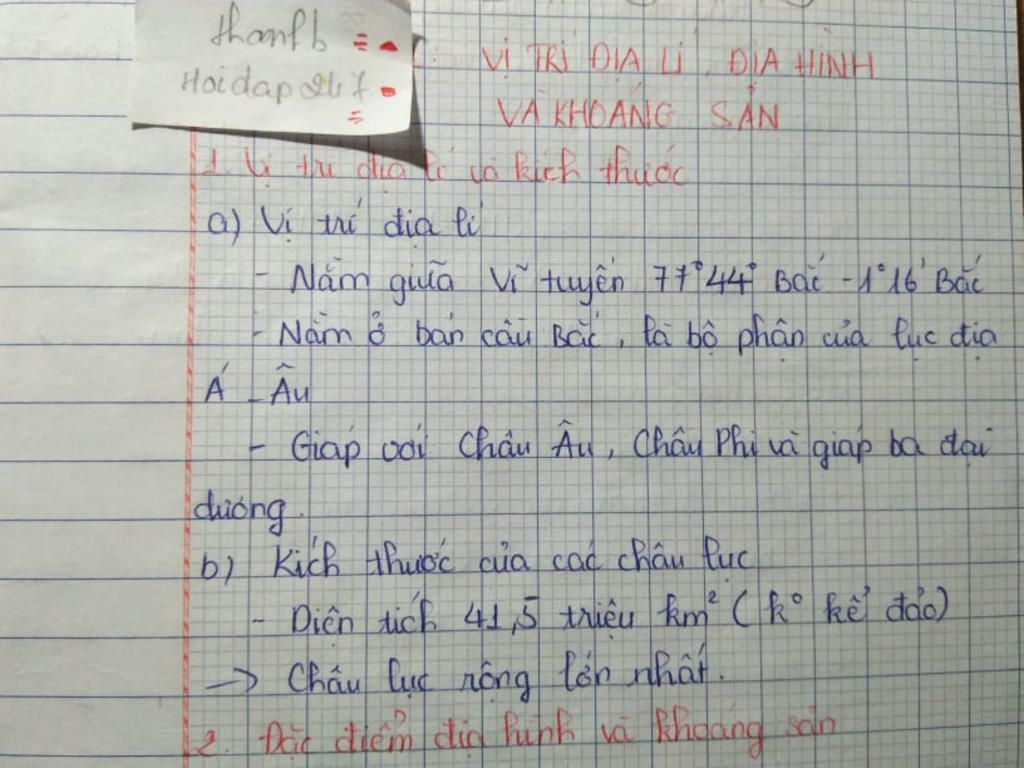 thanfb
Hoidap247
VỊ TRÍ ĐỊA LÍ, ĐỊA HÌNH
VÀ KHOÁNG SẢN
1. Vị trí địa lí và kích thước
a) Vị trí địa lí
- Nằm giữa vĩ tuyến 77°44° Bắc - 1°16' Bắc
- Nằm ở bán cầu Bắc, là bộ phận của lục địa
Á - Âu
- Giáp với Châu Âu, Châu Phi và giáp ba đại
dương.
b) Kích thước của các châu lục
- Diện tích 41,5 triệu km² (k° kể đảo)
→ Châu lục rộng lớn nhất.
2. Đặc điểm địa hình và khoáng sản